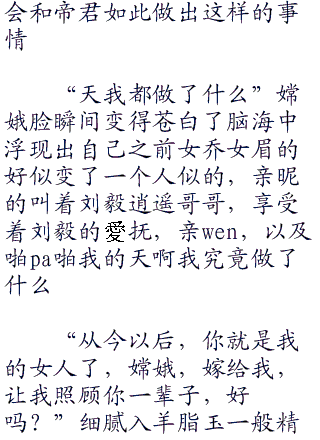 会和帝君如此做出这样的事
情
“天我都做了什么”嫦
娥脸瞬间变得苍白了脑海中
浮现出自己之前女乔女眉的
好似变了一个人似的，亲昵
的叫着刘毅逍遥哥哥，享受
着刘毅的愛抚，亲wen，以及
啪pa啪我的天啊我究竟做了
什么
“从今以后，你就是我
的女人了，嫦娥，嫁给我，
让我照顾你一辈子，好
吗？”细腻入羊脂玉一般精